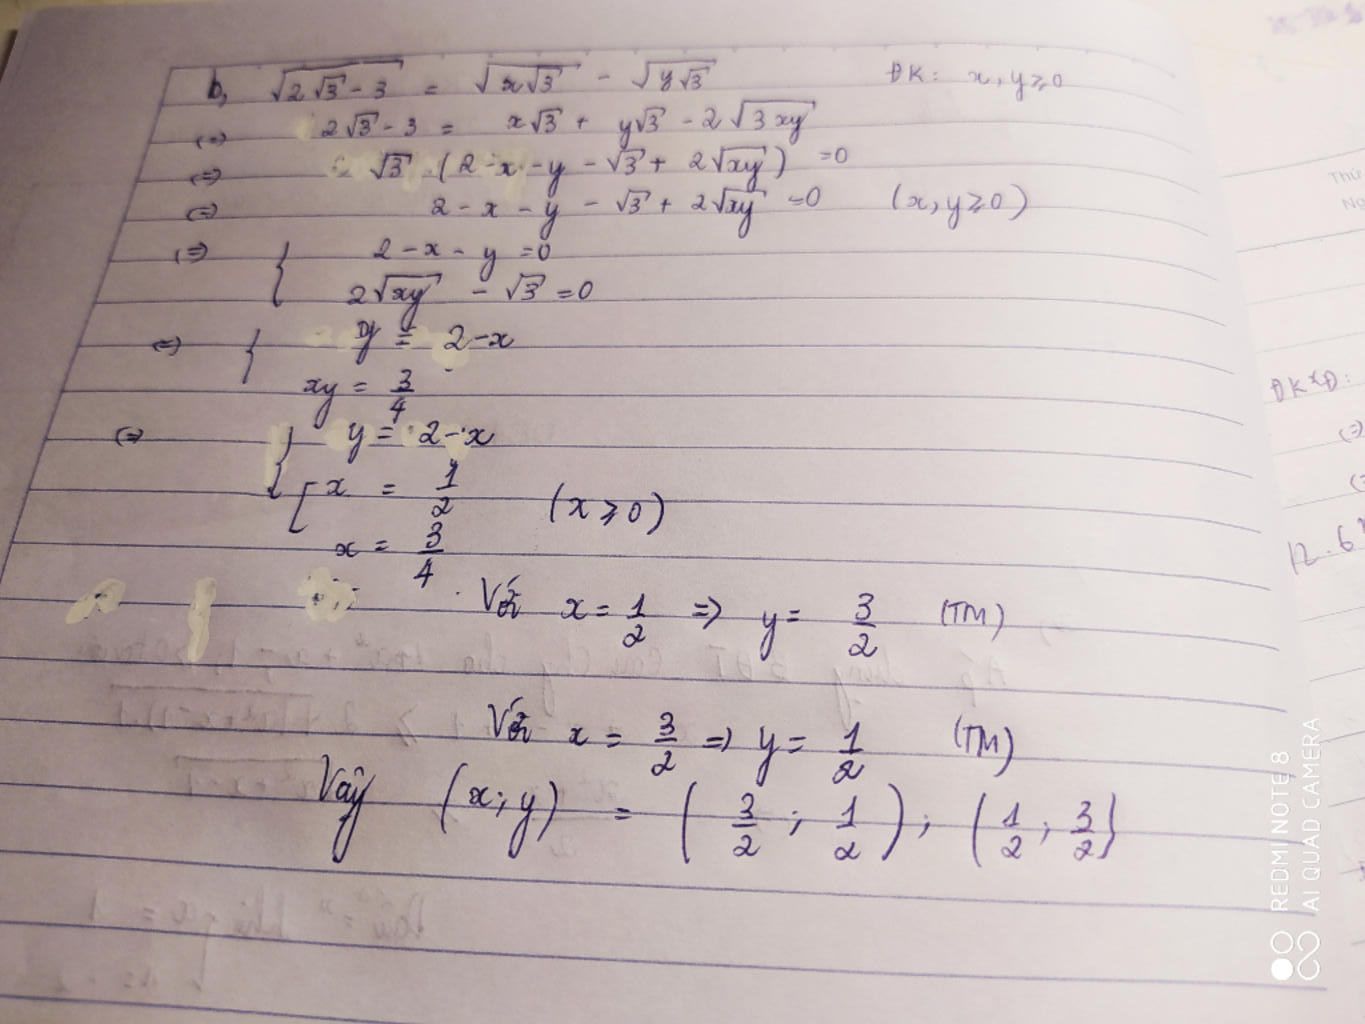 b, √(2√3 - 3) = √(x√3) - √(y√3) ĐK: x, y ≥ 0
(=) 2√3 - 3 = x√3 + y√3 - 2√(3xy)
(=) √3 . (2 - x - y - √3 + 2√(xy)) = 0
(=) 2 - x - y - √3 + 2√(xy) = 0 (x, y ≥ 0)
(=) { 2 - x - y = 0
2√(xy) - √3 = 0
(=) { y = 2 - x
xy = 3/4
(=) { y = 2 - x
[ x = 1/2 (x ≥ 0)
x = 3/4
Với x = 1/2 => y = 3/2 (TM)
Với x = 3/2 => y = 1/2 (TM)
Vậy (x; y) = (3/2; 1/2); (1/2; 3/2)
Thứ
ĐKXĐ:
(=)
12.6
REDMI NOTE 8
AI QUAD CAMERA